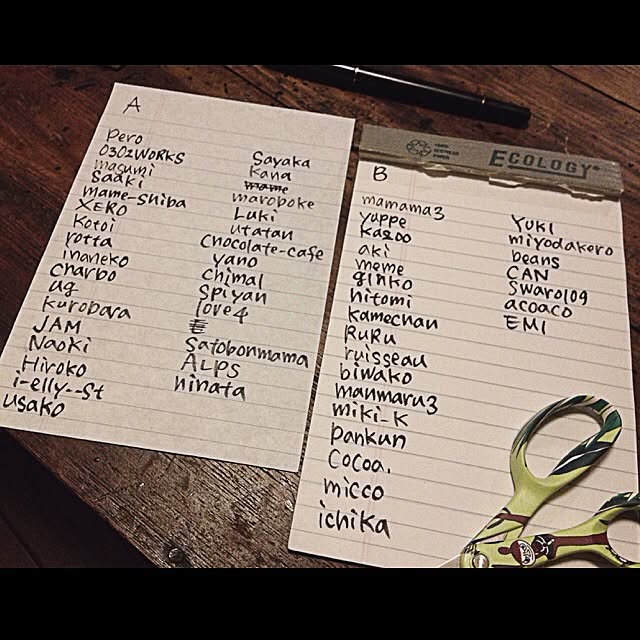 A
Pero
0302WORKS
masumi
saaki
mame-shiba
XERO
Kotoi
rotta
inaneko
charbo
ug
kurobara
JAM
Naoki
Hiroko
i-elly--st
usako
Sayaka
Kana
maroboke
Luki
utatan
chocolate-cafe
yano
chimal
spiyan
love4
satobonmama
ALPS
hinata
ECOLOGY
B
mamama3
yuppe
kazoo
aki
meme
ginko
hitomi
kamechan
RuRu
ruisseau
biwako
manmaru3
miki_K
pankun
cocoa.
micco
ichika
YUKI
miyodakero
beans
CAN
swaro109
acoaco
EMI